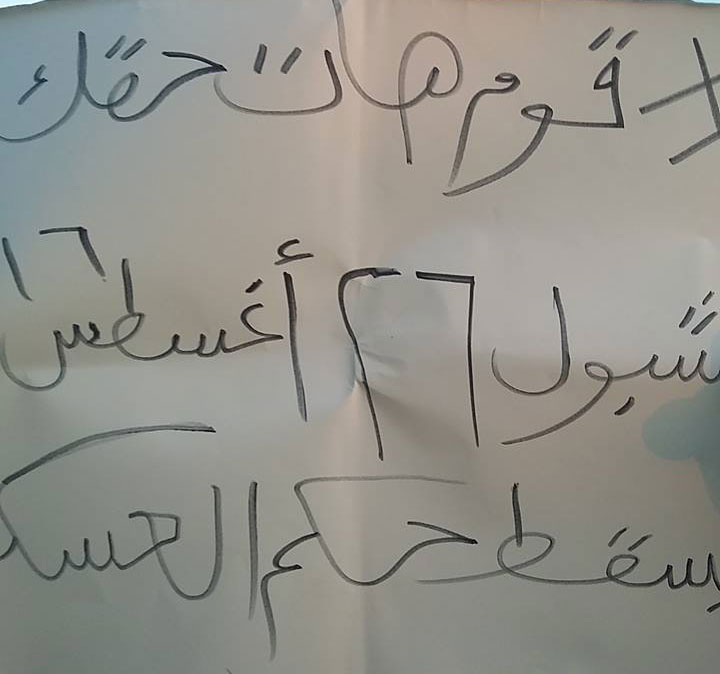 #قوم هات حقك
شبول ٢٦ أغسطس ١٦
يسقط حكم العسك